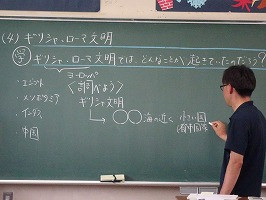 (4) ギリシャ、ローマ文明
学 ギリシャ、ローマ文明では、どんなことが起きていたのだろう?
ヨーロッパ
〈調べよう〉
・エジプト
・メソポタミア
・インダス
・中国
ギリシャ文明
→ ○○ 海の近く 小さい国